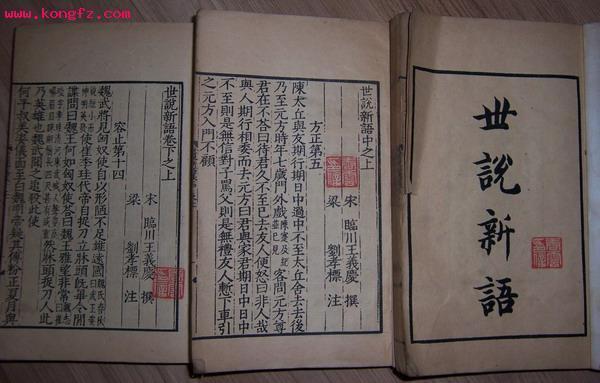 www.kongfz.com
世說新語
世說新語中之上
宋 臨川王義慶 撰
梁 劉孝標 注
方正第五
陳太丘與友期行期日中過中不至太丘舍去去後
乃至元方時年七歲門外戲陳寔及紀並已見客問元方尊
君在不答曰待君久不至已去友人便怒曰非人哉
與人期行相委而去元方曰君與家君期日中日中
不至則是無信對子罵父則是無禮友人慙下車引
之元方入門不顧
世說新語卷下之上
宋 臨川王義慶 撰
梁 劉孝標 注
容止第十四
魏武將見匈奴使自以形陋不足雄遠國魏氏春秋曰武王姿
貌短小而神明英發使崔季珪代帝自捉刀立牀頭旣畢令間
諜問曰魏王何如匈奴使答曰魏王雅望非常
然牀頭捉刀人此
乃英雄也魏武聞之追殺此使
何平叔美姿儀面至白魏明帝疑其傅粉正夏月與